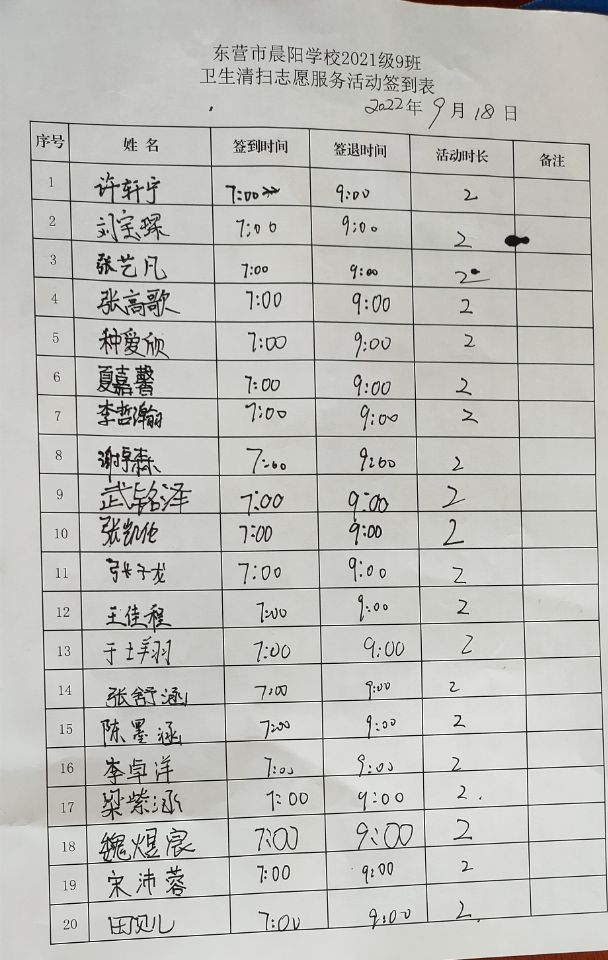 东营市晨阳学校2021级9班
卫生清扫志愿服务活动签到表
2022年9月18日
序号 姓名 签到时间 签退时间 活动时长 备注
1 许轩宁 7:00 9:00 2
2 刘宝琛 7:00 9:00 2
3 张艺凡 7:00 9:00 2
4 张高歌 7:00 9:00 2
5 种爱欣 7:00 9:00 2
6 夏嘉馨 7:00 9:00 2
7 李哲瀚 7:00 9:00 2
8 谢卓森 7:00 9:00 2
9 武铭泽 7:00 9:00 2
10 张凯伦 7:00 9:00 2
11 张子龙 7:00 9:00 2
12 王佳程 7:00 9:00 2
13 于 翔羽 7:00 9:00 2
14 张舒涵 7:00 9:00 2
15 陈墨涵 7:00 9:00 2
16 李卓洋 7:00 9:00 2
17 梁紫涵 7:00 9:00 2
18 魏煜宸 7:00 9:00 2
19 宋沛蓉 7:00 9:00 2
20 田贝儿 7:00 9:00 2